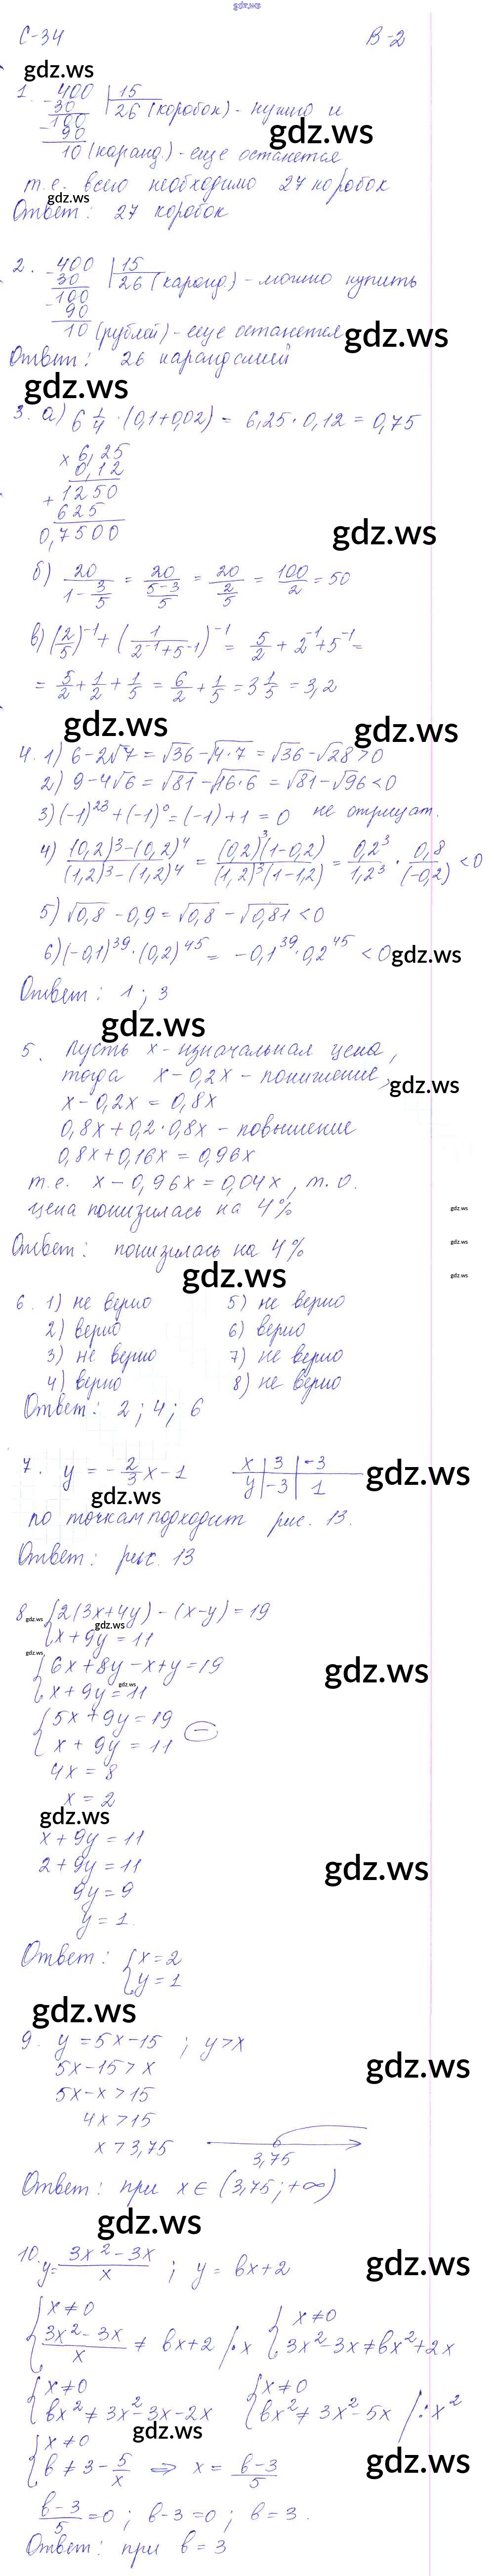 gdz.ws
С-34 В-2
gdz.ws
1. 400 | 15
30 26 (коробок) - нужно и
100
90 gdz.ws
10 (каранд.) - еще останется
т.е. всего необходимо 27 коробок
gdz.ws
Ответ: 27 коробок
2. 400 | 15
30 26 (каранд.) - можно купить
100
90
10 (рублей) - еще останется gdz.ws
Ответ: 26 карандашей
gdz.ws
3. а) 6 1/4 · (0,1+0,02) = 6,25 · 0,12 = 0,75
× 6,25
0,12
+ 1250
625
0,7500 gdz.ws
б) 20/(1-3/5) = 20/((5-3)/5) = 20/(2/5) = 100/2 = 50
в) (2/5)^-1 + (1/(2^-1+5^-1))^-1 = 5/2 + 2^-1 + 5^-1 =
= 5/2 + 1/2 + 1/5 = 6/2 + 1/5 = 3 1/5 = 3,2
gdz.ws gdz.ws
4. 1) 6-2√7 = √36 - √4·7 = √36 - √28 > 0
2) 9-4√6 = √81 - √16·6 = √81 - √96 < 0
3) (-1)^23 + (-1)^0 = (-1) + 1 = 0 не отрицат.
4) ((0,2)^3-(0,2)^4)/((1,2)^3-(1,2)^4) = ((0,2)^3(1-0,2))/((1,2)^3(1-1,2)) = 0,2^3/1,2^3 · 0,8/(-0,2) < 0
5) √0,8 - 0,9 = √0,8 - √0,81 < 0
6) (-0,1)^39 · (0,2)^45 = -0,1^39 · 0,2^45 < 0 gdz.ws
Ответ: 1; 3
gdz.ws
5. Пусть x - изначальная цена,
тогда x - 0,2x - понижение, gdz.ws
x - 0,2x = 0,8x
0,8x + 0,2·0,8x - повышение
0,8x + 0,16x = 0,96x
т.е. x - 0,96x = 0,04x, т.о.
цена понизилась на 4% gdz.ws
Ответ: понизилась на 4% gdz.ws
gdz.ws gdz.ws
6. 1) не верно 5) не верно
2) верно 6) верно
3) не верно 7) не верно
4) верно 8) не верно
Ответ: 2; 4; 6
7. y = -2/3 x - 1 x | 3 | -3 gdz.ws
y | -3 | 1
gdz.ws
по точкам подходит рис. 13.
Ответ: рис. 13
8. gdz.ws {2(3x+4y) - (x-y) = 19
gdz.ws
x + 9y = 11
gdz.ws {6x + 8y - x + y = 19 gdz.ws
x + 9y = 11 gdz.ws
{5x + 9y = 19 (-)
x + 9y = 11
4x = 8
x = 2
gdz.ws
x + 9y = 11
2 + 9y = 11 gdz.ws
9y = 9
y = 1.
Ответ: {x = 2
y = 1
gdz.ws
9. y = 5x - 15 ; y > x
5x - 15 > x gdz.ws
5x - x > 15
4x > 15
x > 3,75
3,75
Ответ: при x ∈ (3,75; +∞)
gdz.ws
10. y = (3x^2 - 3x)/x ; y = bx + 2 gdz.ws
{x ≠ 0 {x ≠ 0
(3x^2 - 3x)/x ≠ bx + 2 /·x 3x^2 - 3x ≠ bx^2 + 2x
{x ≠ 0 {x ≠ 0
bx^2 ≠ 3x^2 - 3x - 2x bx^2 ≠ 3x^2 - 5x /:x^2
gdz.ws
{x ≠ 0
b ≠ 3 - 5/x ⇒ x = (b-3)/5 gdz.ws
(b-3)/5 = 0 ; b - 3 = 0 ; b = 3.
Ответ: при b = 3